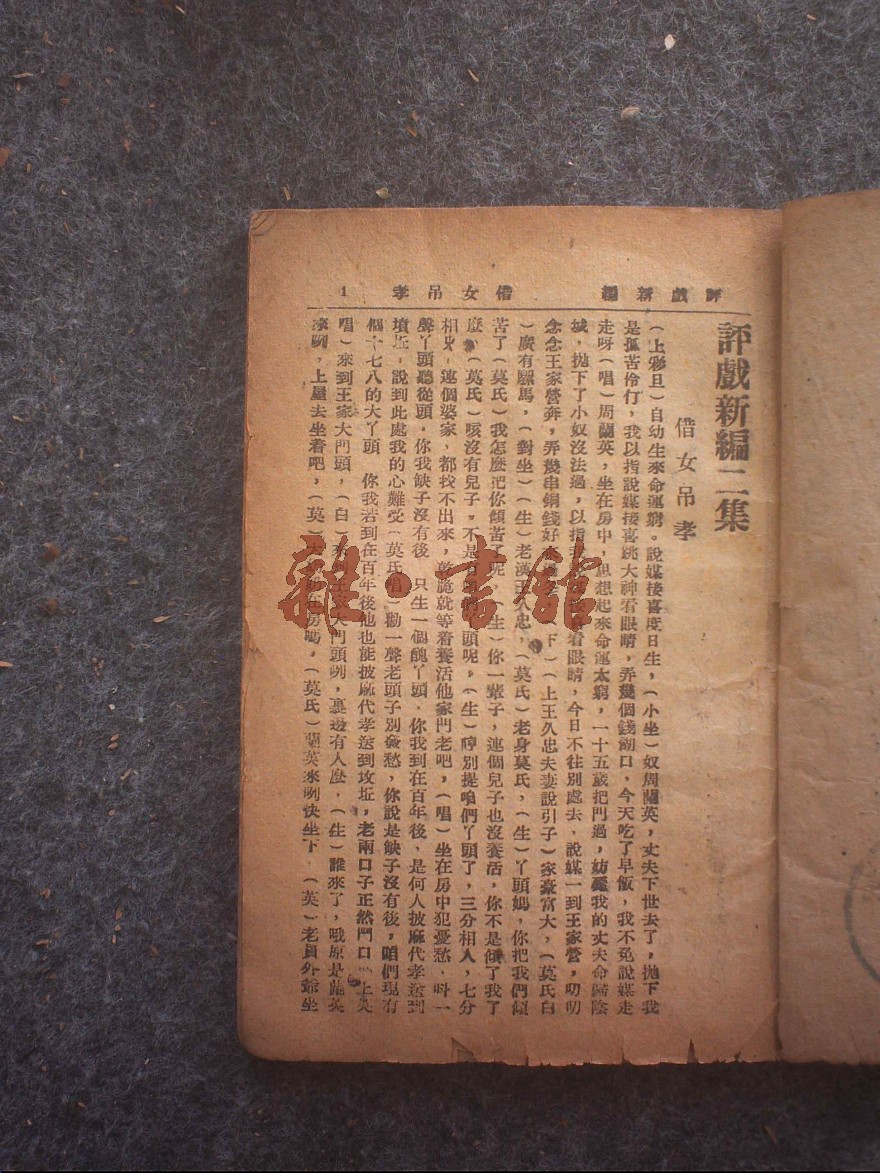 評戲新編 借女吊孝 1
評戲新編二集
借女吊孝
(上彩旦)自幼生來命運窮。說媒接喜度日生,(小坐)奴周蘭英,丈夫下世去了,拋下我
是孤苦伶仃,我以指說媒接喜跳大神看眼睛,弄幾個錢餬口,今天吃了早飯,我不免說媒走
走呀(唱)周蘭英,坐在房中,思想起來命運太窮,一十五歲把門過,妨死我的丈夫命歸陰
城,拋下了小奴沒法過,以指 看眼睛,今日不往別處去,說媒一到王家營,叨叨
念念王家營奔,弄幾串銅錢好 下)(上王久忠夫妻說引子)家豪富大,(莫氏白
)廣有騾馬,(對坐)(生)老漢王久忠,(莫氏)老身莫氏,(生)丫頭媽,你把我們傾
苦了(莫氏)我怎麼把你傾苦了呢,(生)你一輩子,連個兒子也沒養活,你不是傾了我了
麼,(莫氏)咳沒有兒子,不是有咱們丫頭呢,(生)哼別提咱們丫頭了,三分相人,七分
相鬼,連個婆家,都找不出來,乾脆就等着養活他家門老吧,(唱)坐在房中犯憂愁,叫一
聲丫頭聽從頭,你我缺子沒有後 只生一個醜丫頭,你我到在百年後,是何人披麻代孝送到
墳坵,說到此處我的心難受(莫氏唱)勸一聲老頭子別發愁,你說是缺子沒有後,咱們現有
個十七八的大丫頭 你我若到在百年後他也能披麻代孝送到坟坵,老兩口子正然鬥口(上英
唱)來到王家大門頭,(白)來到王家大門頭咧,裏邊有人麼,(生)誰來了,哦原是蘭英
來咧,上屋去坐着吧,(英)大 在房嗎,(莫氏)蘭英來咧快坐下,(英)老員外爺坐
雜·書館